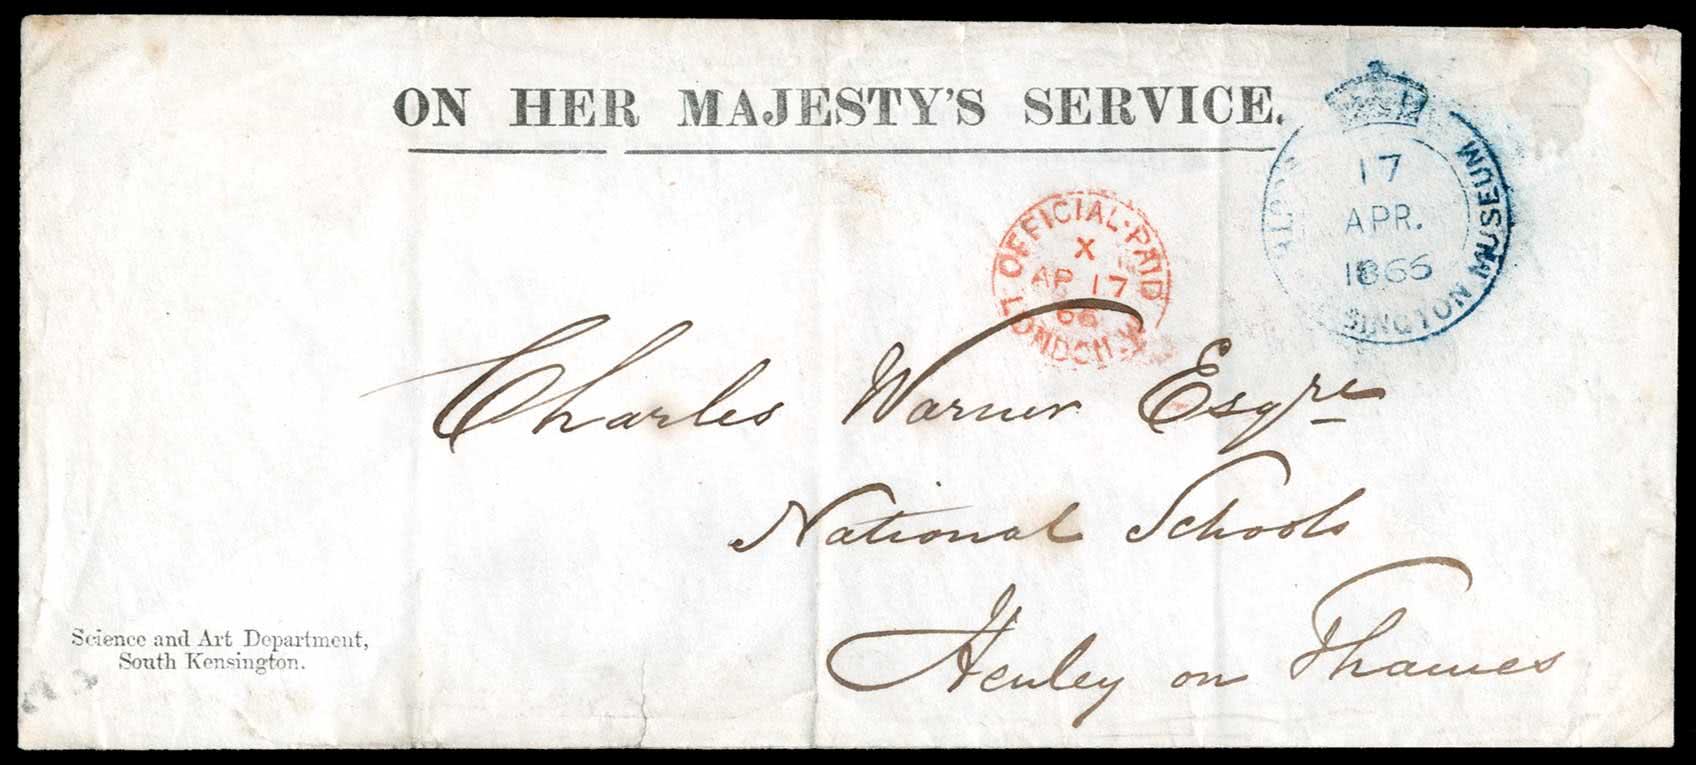 ON HER MAJESTY'S SERVICE.
17
APR.
1866
MUSEUM
OFFICIAL·PAID
X
AP 17
66
LONDON
Charles Warner Esqre
National Schools
Henley on Thames
Science and Art Department,
South Kensington.